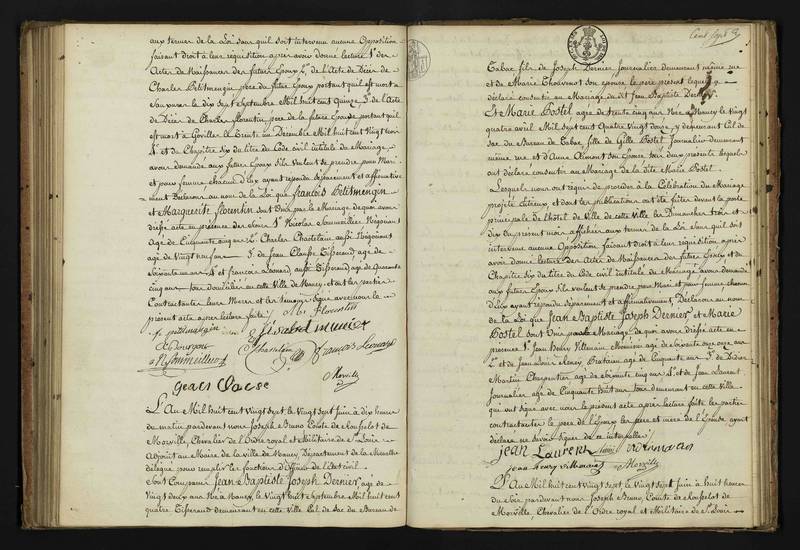 aux termes de la Loi sans quil soit intervenu aucune Opposition
faisant droit à leur réquisition après avoir donné lecture 1° des
Actes de Naissances des futurs Epoux 2° de l'Acte de Décès de
Charles Petitmengin père du futur Epoux portant quil est mort à
le dix Sept Septembre Mil huit cent Quinze 3° de l'Acte
de Décès de Charles florentin père de la future Epouse portant quil
est mort à Goviller le trente un Décembre Mil huit cent Vingt trois
4° et du Chapitre Six du titre du Code civil intitulé du Mariage
avons demandé aux futurs Epoux sils veulent se prendre pour Mari
et pour femme chacun d'Eux ayant répondu séparement et affirmative
ment Déclarons au nom de la Loi que françois Petitmengin
et Marguerite florentin sont Unis par le Mariage de quoi avons
dressé acte en présence des Sieurs 1° Nicolas Sommeillier Négociant
âgé de Cinquante cinq ans 2° Charles Chastelain aussi Négociant
âgé de Vingt neuf ans 3° de Jean Claude Tisserand âgé de
Soixante ans 4° et françois Léonard aussi Tisserand âgé de Quarante
cinq ans tous domiciliés en cette Ville de Nancy et ont les parties
Contractantes leurs Mères et les témoins signé avec nous le
présent acte après lecture faite
Mte florentin
f. petitmengin
Elisabet munier
C. Bourgon
N. Sommeillier
Chastelain
François Léonard
Morville
Jean Claude
L'An Mil huit cent Vingt Sept, le Vingt Sept Juin à dix heures
du matin pardevant nous Joseph Bruno Comte de Rousselot de
Morville, Chevalier de l'Ordre royal et Militaire de St Louis
Adjoint au Maire de la Ville de Nancy, Département de la Meurthe
délégué pour remplir les fonctions d'Officier de l'Etat civil.
Sont Comparus Jean Baptiste Joseph Dernier âgé de
Vingt deux ans Né à Nancy, le Vingt huit Septembre Mil huit cent
quatre Tisserand demeurant en cette Ville Cul de Sac du Bureau de
Cent Sept
Tabac fils de Joseph Dernier Journalier demeurant même rue
et de Marie Thouvenot son épouse le père présent lequel a
déclaré consentir au Mariage du dit Jean Baptiste Dernier.
Et Marie Postel âgée de trente cinq ans Née à Nancy le Vingt
quatre avril Mil Sept cent Quatre Vingt douze, y demeurant Cul de
Sac du Bureau de Tabac fille de Gille Postel Journalier demeurant
même rue et d'Anne Simont son Epouse tous deux présents lesquels
ont déclaré consentir au Mariage de la dite Marie Postel.
Lesquels nous ont requis de procéder à la Célébration du Mariage
projetté Entreux, et dont les publications ont été faites devant la porte
principale de l'hôtel de Ville de cette Ville les Dimanches trois et
dix du présent mois affichées aux termes de la Loi sans quil soit
intervenu aucune Opposition faisant droit à leur réquisition après
avoir donné lecture des Actes de Naissances des futurs Epoux, et du
Chapitre Six du titre du Code civil intitulé du Mariage avons demandé
aux futurs Epoux sils veulent se prendre pour Mari et pour femme chacun
d'Eux ayant répondu séparement et affirmativement, Déclarons au nom
de la Loi que Jean Baptiste Joseph Dernier et Marie
Postel sont Unis par le Mariage de quoi avons dressé acte en
présence 1° Jean Henry Villemain Menuisier âgé de Soixante onze ans
2° et de Jean Louis âgé de Cinquante six ans 3° de Didier
Martin Charpentier âgé de Soixante cinq ans 4° et de Jean Laurent
Journalier âgé de Cinquante huit ans tous demeurant en cette Ville
qui ont signé avec nous le présent acte après lecture faite les parties
contractantes le père de l'Epoux les père et mère de l'Epouse ayant
déclaré ne savoir signer de ce interpellés
jean Laurent
jean henry villemain
Morville
L'An Mil huit cent Vingt Sept, le Vingt Sept Juin à huit heures
du Soir pardevant nous Joseph Bruno, Comte de Rousselot de
Morville, Chevalier de l'Ordre royal et Militaire de St Louis